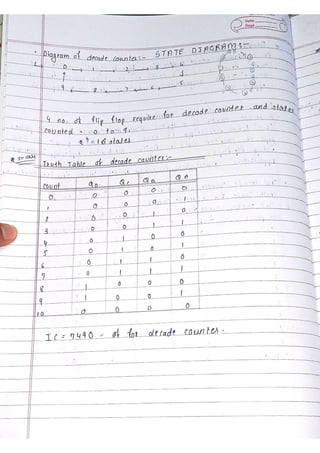 Date
Page
• Diagram of decade counter:- STATE DIAGRAM:-
0 1 2 3 4
9 8 7 6 5
4 no. of flip flop require for decade counter and states
counted = 0 to 9.
2⁴ = 16 states
Truth Table of decade counter:-
Count QD QC QB QA
0. 0 0 0 0
1 0 0 0 1
2 0 0 1 0
3 0 0 1 1
4 0 1 0 0
5 0 1 0 1
6 0 1 1 0
7 0 1 1 1
8 1 0 0 0
9 1 0 0 1
10 0 0 0 0
IC = 7490 - of for decade counter.